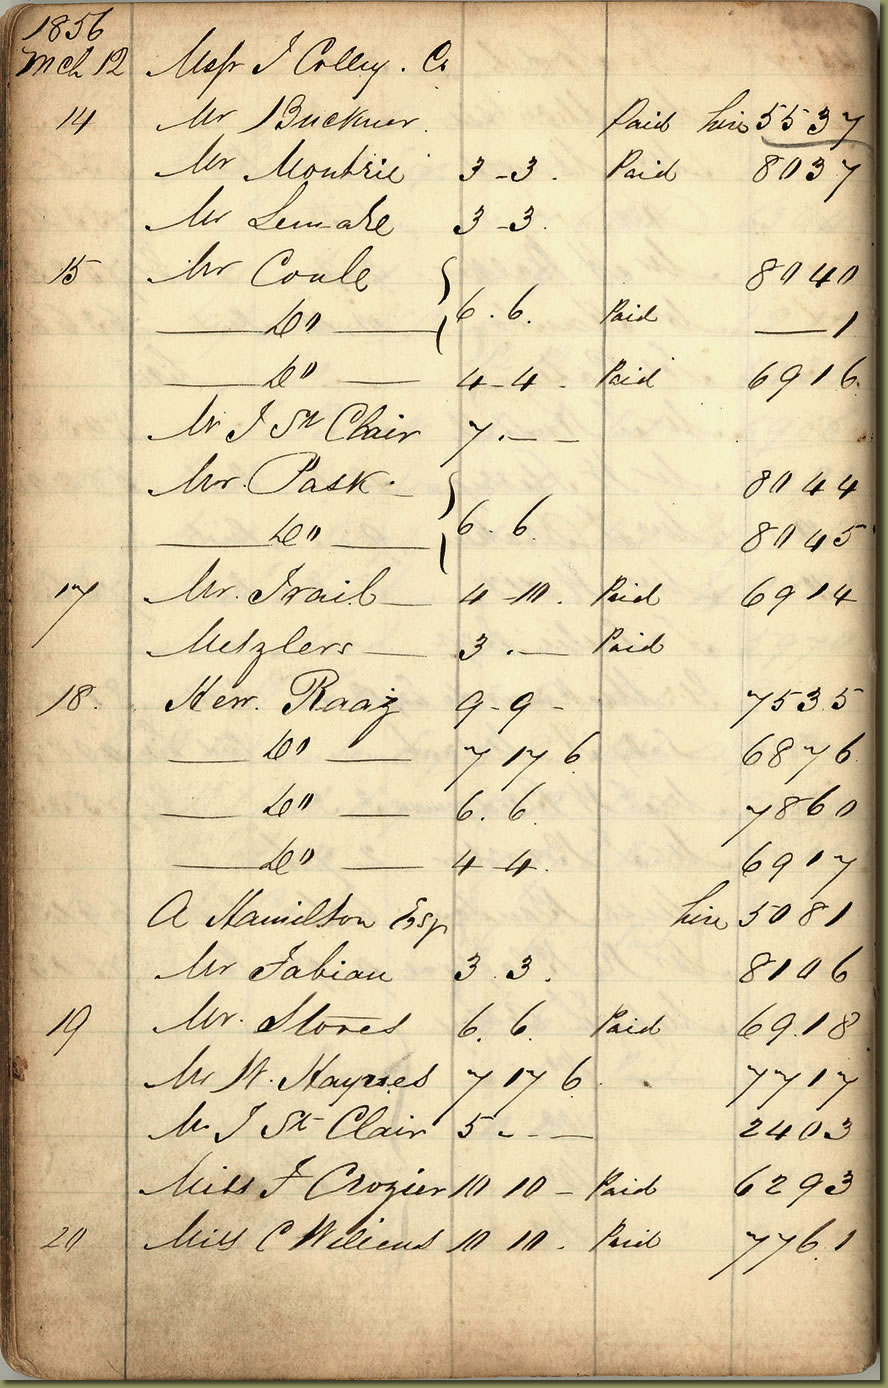 1856
Mch 12 Messrs J Colley. Co
14 Mr Buckner. Paid hire 5537
Mr Montrie 3-3. Paid 8037
Mr Lemare 3-3.
15 Mr Coule 8040
Do 6.6. Paid 1
Do 4-4- Paid 6916
Mr J St Clair 7.--
Mr. Pask. 8044
Do 6.6. 8045
17 Mr. Trail 4-10. Paid 6914
Metzlers 3.- Paid
18. Kerr. Raaz 9-9- 7535
Do 7 17 6 6876
Do 6.6. 7860
Do 4-4. 6917
A Hamilton Esqr hire 5081
Mr Fabian 3.3. 8106
19 Mr. Stores 6.6. Paid 6918
Mr W. Haynes 7 17 6 7717
Mr J St Clair 5.-- 2403
Miss F Crozier 10 10- Paid 6293
20 Miss C 10 10. Paid 7761